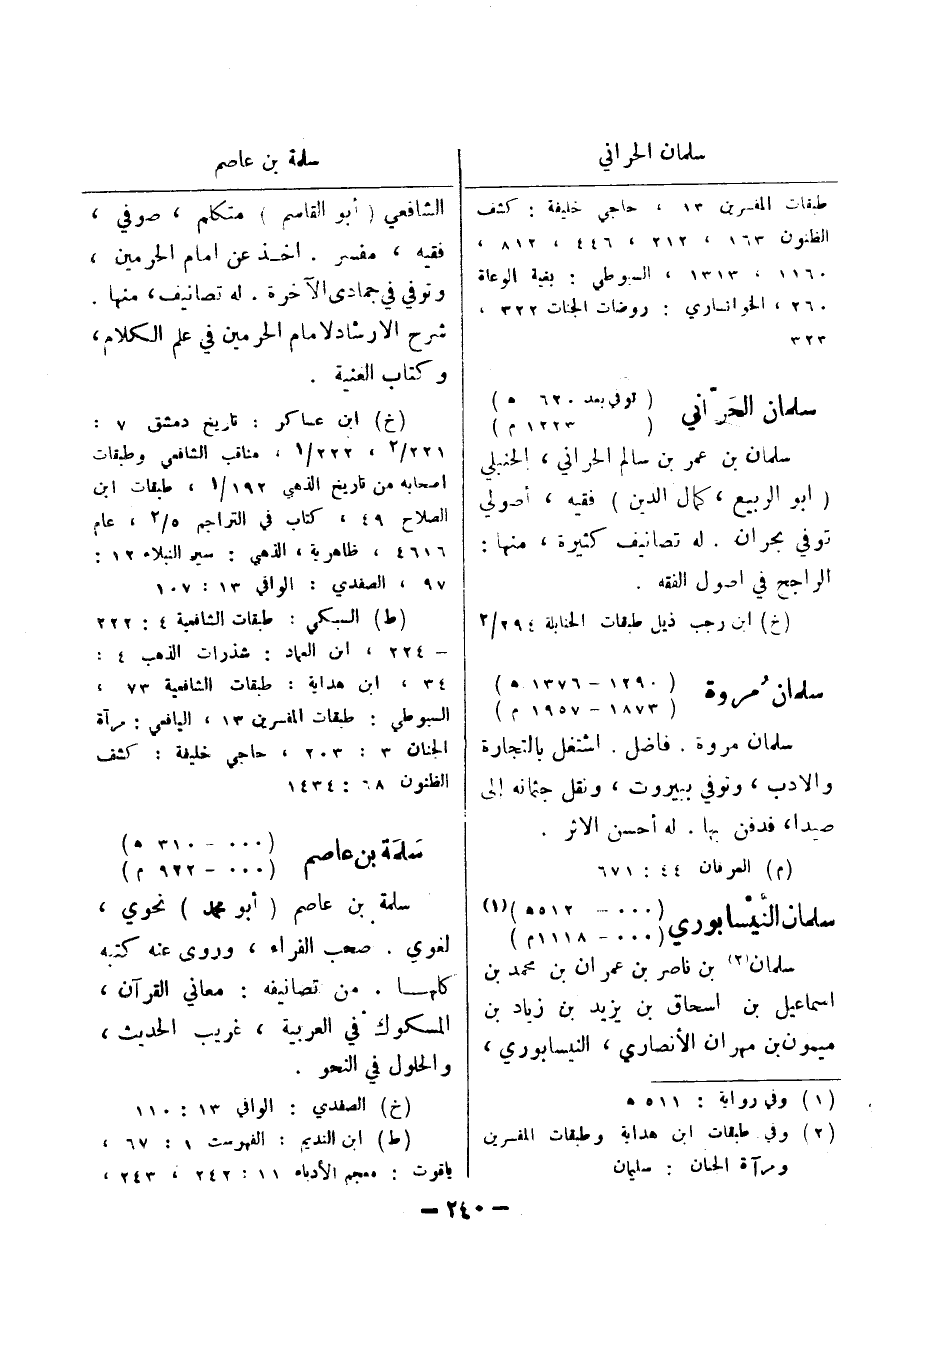 سلمان الحراني
طبقات المفسرين ١٣ ، حاجي خليفة : كشف
الظنون ١٦٣ ، ٢١٢ ، ٤٤٦ ، ٨١٢ ،
١١٦٠ ، ١٣١٣ ، السيوطي : بغية الوعاة
٢٦٠ ، الخوانساري : روضات الجنات ٣٢٢ ،
٣٢٣
سلمان الحَرّاني ( توفي بعد ٦٢٠ ه )
( ١٢٢٣ م )
سلمان بن عمر بن سالم الحراني ، الحنبلي
( ابو الربيع ، كمال الدين ) فقيه ، أصولي
توفي بحران . له تصانيف كثيرة ، منها :
الراجح في اصول الفقه .
(خ) ابن رجب ذيل طبقات الحنابلة ٢/٢٩٤
سلمان مُروة ( ١٢٩٠ – ١٣٧٦ ه )
( ١٨٧٣ – ١٩٥٧ م )
سلمان مروة . فاضل . اشتغل بالتجارة
والادب ، وتوفي ببيروت ، ونقل جثمانه إلى
صيدا، فدفن بها . له أحسن الاثر .
(م) العرفان ٤٤ : ٦٧١
سلمان النَّيْسابوري (٠٠٠ – ٥١٢ه)(١)
(٠٠٠ – ١١١٨م)
سلمان(٢) بن ناصر بن عمران بن محمد بن
اسماعيل بن اسحاق بن يزيد بن زياد بن
ميمون بن مهران الأنصاري ، النيسابوري ،
(١) وفي رواية : ٥١١ ه
(٢) وفي طبقات ابن هداية وطبقات المفسرين
ومرآة الجنان : سليمان
سلمة بن عاصم
الشافعي ( أبو القاسم ) متكلم ، صوفي ،
فقيه ، مفسر . اخذ عن امام الحرمين ،
وتوفي في جمادى الآخرة . له تصانيف، منها .
شرح الارشاد لامام الحرمين في علم الكلام،
وكتاب الغنية .
(خ) ابن عساكر : تاريخ دمشق ٧ :
٢/٢٢١ ، ١/٢٢٢ ، مناقب الشافعي وطبقات
اصحابه من تاريخ الذهبي ١/١٩٢ ، طبقات ابن
الصلاح ٤٩ ، كتاب في التراجم ٢/٥ ، عام
٤٦١٦ ، ظاهرية ، الذهبي : سير النبلاء ١٢ :
٩٧ ، الصفدي : الوافي ١٣ : ١٠٧
(ط) السبكي : طبقات الشافعية ٤ : ٢٢٢
– ٢٢٤ ، ابن العماد : شذرات الذهب ٤ :
٣٤ ، ابن هداية : طبقات الشافعية ٧٣ ،
السيوطي : طبقات المفسرين ١٣ ، اليافعي : مرآة
الجنان ٣ : ٢٠٣ ، حاجي خليفة : كشف
الظنون ٦٨ : ١٤٣٤
سَلَمَة بن عاصم (٠٠٠ – ٣١٠ ه)
(٠٠٠ – ٩٢٢ م)
سلمة بن عاصم ( أبو محمد ) نحوي ،
لغوي . صحب الفراء ، وروى عنه كتبه
كلها . من تصانيفه : معاني القرآن ،
المسكوك في العربية ، غريب الحديث ،
والحلول في النحو .
(خ) الصفدي : الوافي ١٣ : ١١٠
(ط) ابن النديم : الفهرست ١ : ٦٧ ،
ياقوت : معجم الأدباء ١١ : ٢٤٢ ، ٢٤٣ ،
– ٢٤٠ –